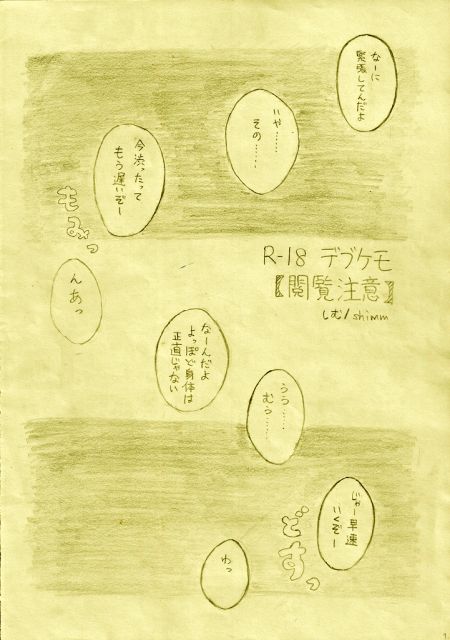 なーに
緊張してんだよ
いや……
その……
今渋ったって
もう遅いぞー
もみっ
んあっ
R-18 デブケモ
【閲覧注意】
しむ/shimm
なーんだよ
よっぽど身体は
正直じゃない
うう……
むう……
じゃー早速
いくぞー
どすっ
わっ
1